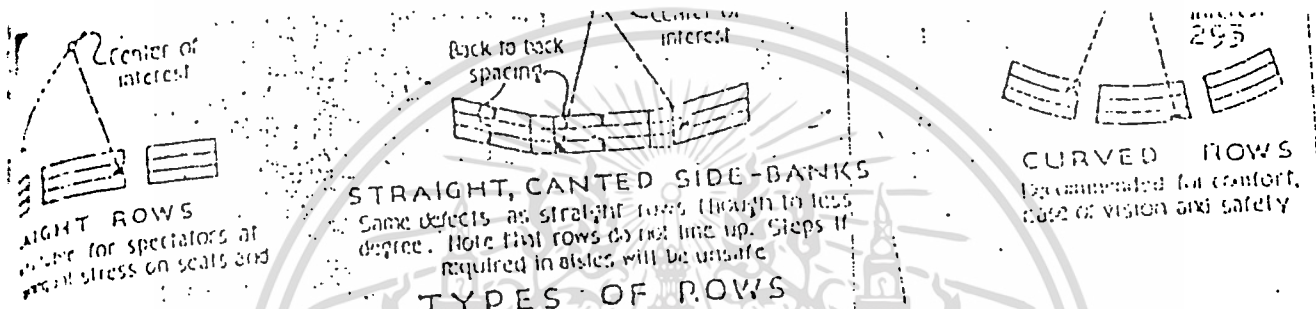 center of
interest
AIGHT ROWS
for spectators at
stress on seats and
Back to back
spacing
center of
interest
STRAIGHT, CANTED SIDE-BANKS
Same defects as straight rows though to less
degree. Note that rows do not line up. Steps if
required in aisles will be unsafe
TYPES OF ROWS
interest
295
CURVED ROWS
Recommended for comfort,
ease of vision and safety